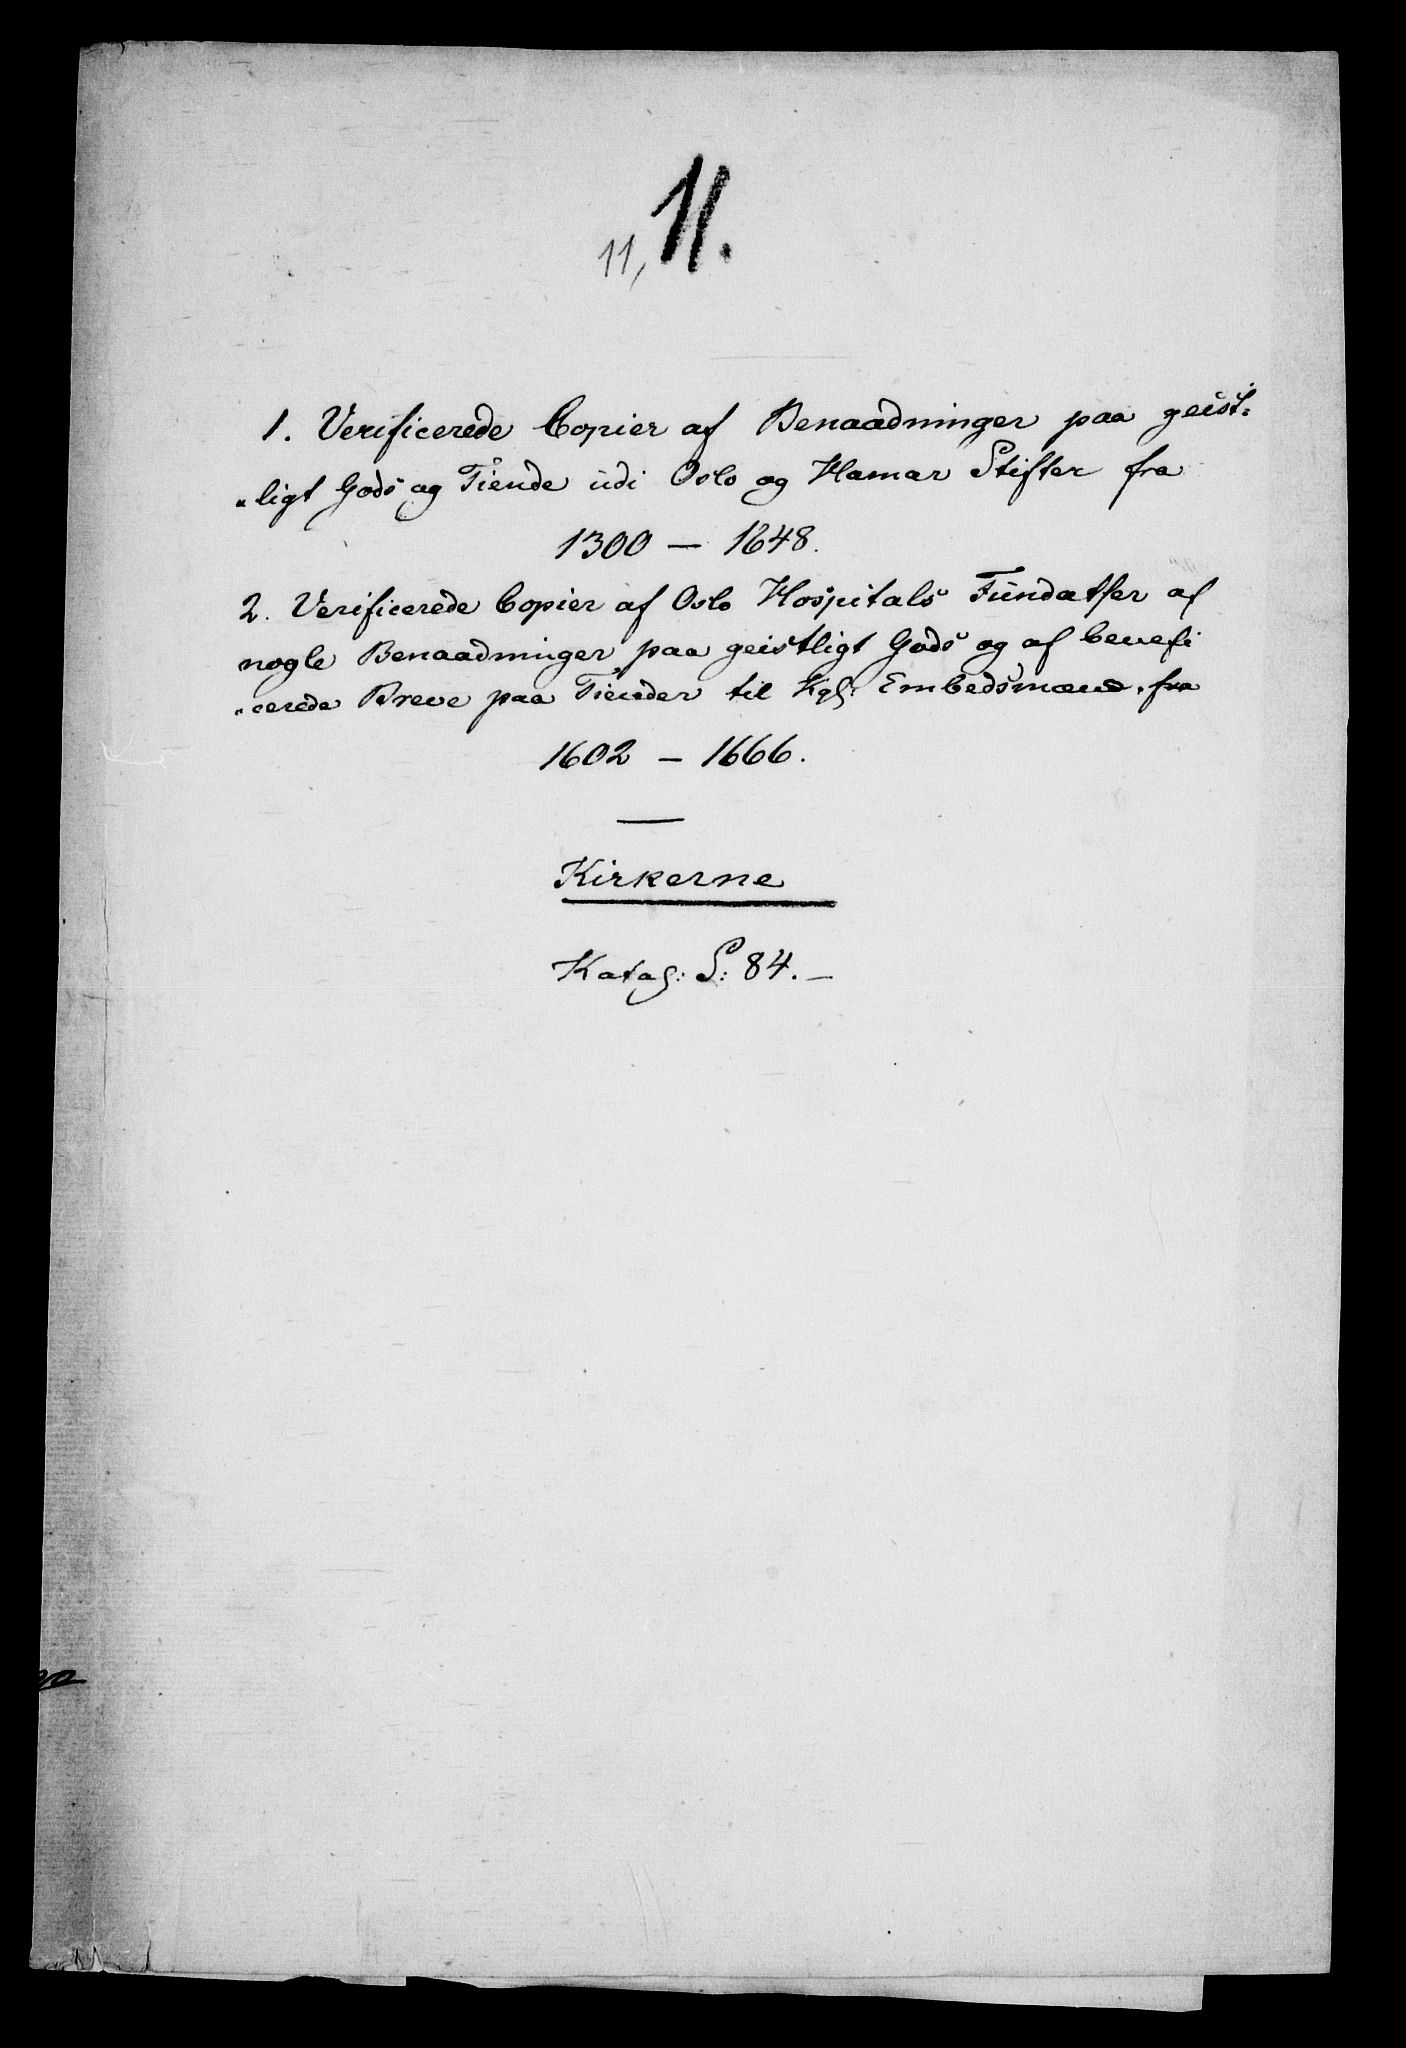 11.
11,
1. Verificerede Copier af Benaadninger paa geist-
"ligt Gods og Tiende udi Oslo og Hamar Stifter fra
1300 — 1648.
2. Verificerede Copier af Oslo Hospitals Fundatser af
nogle Benaadninger paa geistligt Gods og af benefi
"cerede Breve paa Tiender til Kgl: Embedsmænd, fra
1602 — 1666.
Kirkerne
Katal: S: 84. —